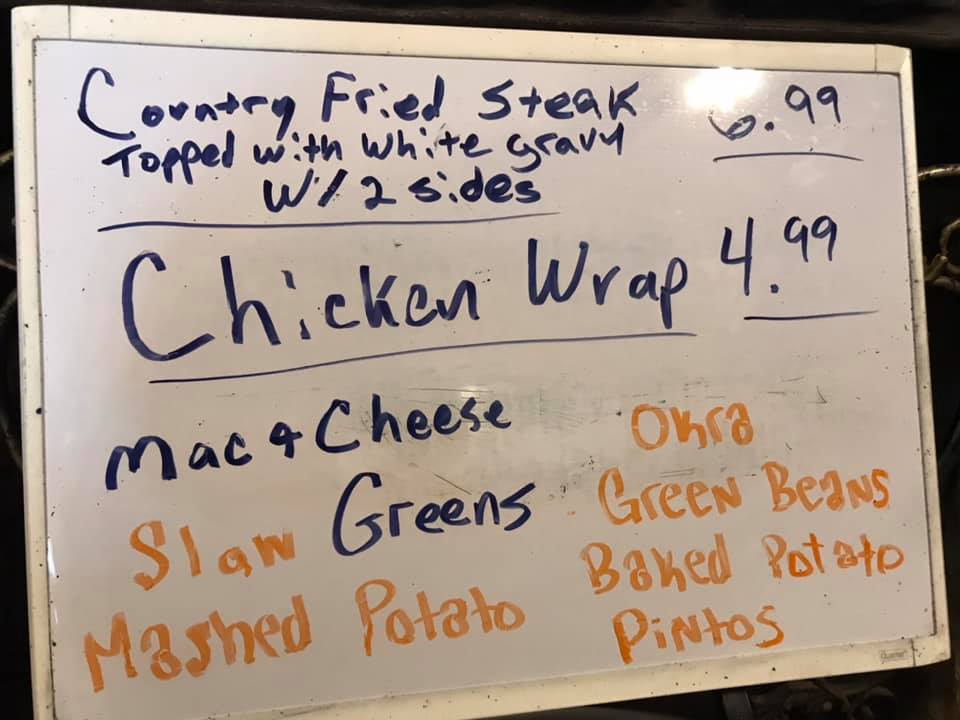 Country Fried Steak 6.99
Topped with white gravy
W/ 2 sides
Chicken Wrap 4.99
Mac & Cheese
Okra
Greens
Green Beans
Slaw
Baked Potato
Mashed Potato
Pintos
Quartet